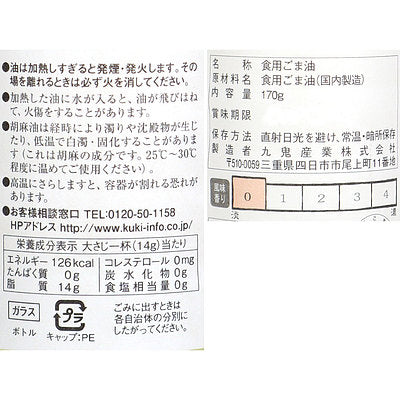 ●油は加熱しすぎると発煙・発火します。その
場を離れるときは必ず火を消してください。
●加熱した油に水が入ると、油が飛びはね
て、火傷をすることがあります。
●胡麻油は経時により濁りや沈殿物が生じ
たり、低温で白濁・固化することがありま
す(これは胡麻の成分です。25℃〜30℃
程度に温めてご使用ください)。
●高温にさらしますと、容器が割れる恐れが
あります。
●お客様相談窓口 TEL:0120-50-1158
HPアドレス http://www.kuki-info.co.jp/
栄養成分表示 大さじ一杯(14g)当たり
エネルギー 126kcal コレステロール 0mg
たんぱく質 0g 炭水化物 0g
脂質 14g 食塩相当量 0g
ガラス
ボトル
プラ
キャップ:PE
ごみに出すときは
各自治体の分別に
したがってください。
名称 食用ごま油
原材料名 食用ごま油(国内製造)
内容量 170g
賞味期限
保存方法 直射日光を避け、常温・暗所保存
製造者 九鬼産業株式会社
〒510-0059 三重県四日市市尾上町11番地
風味
香り
0 1 2 3 4
淡 濃